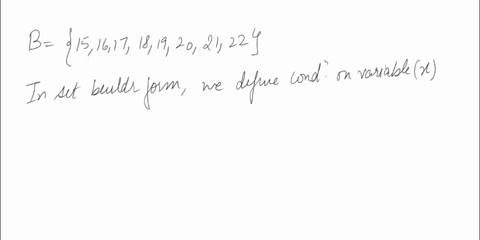 B = {15, 16, 17, 18, 19, 20, 21, 22}
In set buildr form, we define condⁿ on variable (x)